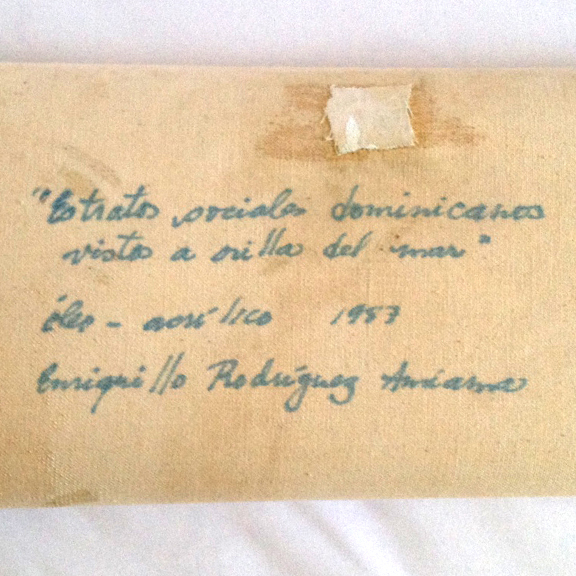 "Estratos sociales dominicanos
vistos a orilla del mar"
óleo - acrílico 1983
Enriquillo Rodríguez Amiama